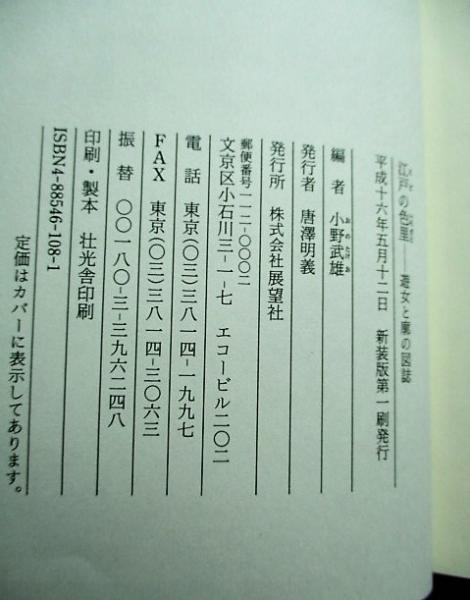 江戸の色里――遊女と廓の図誌
平成十六年五月十二日　新装版第一刷発行
編　者　小野武雄
発行者　唐澤明義
発行所　株式会社展望社
郵便番号一一二-〇〇〇二
文京区小石川三-一-七　エコービル二〇二
電　話　東京(〇三)三八一四-一九九七
FAX　東京(〇三)三八一四-三〇六三
振　替　〇〇一八〇-三-三九六二四八
印刷・製本　壮光舎印刷
ISBN4-88546-108-1
定価はカバーに表示してあります。